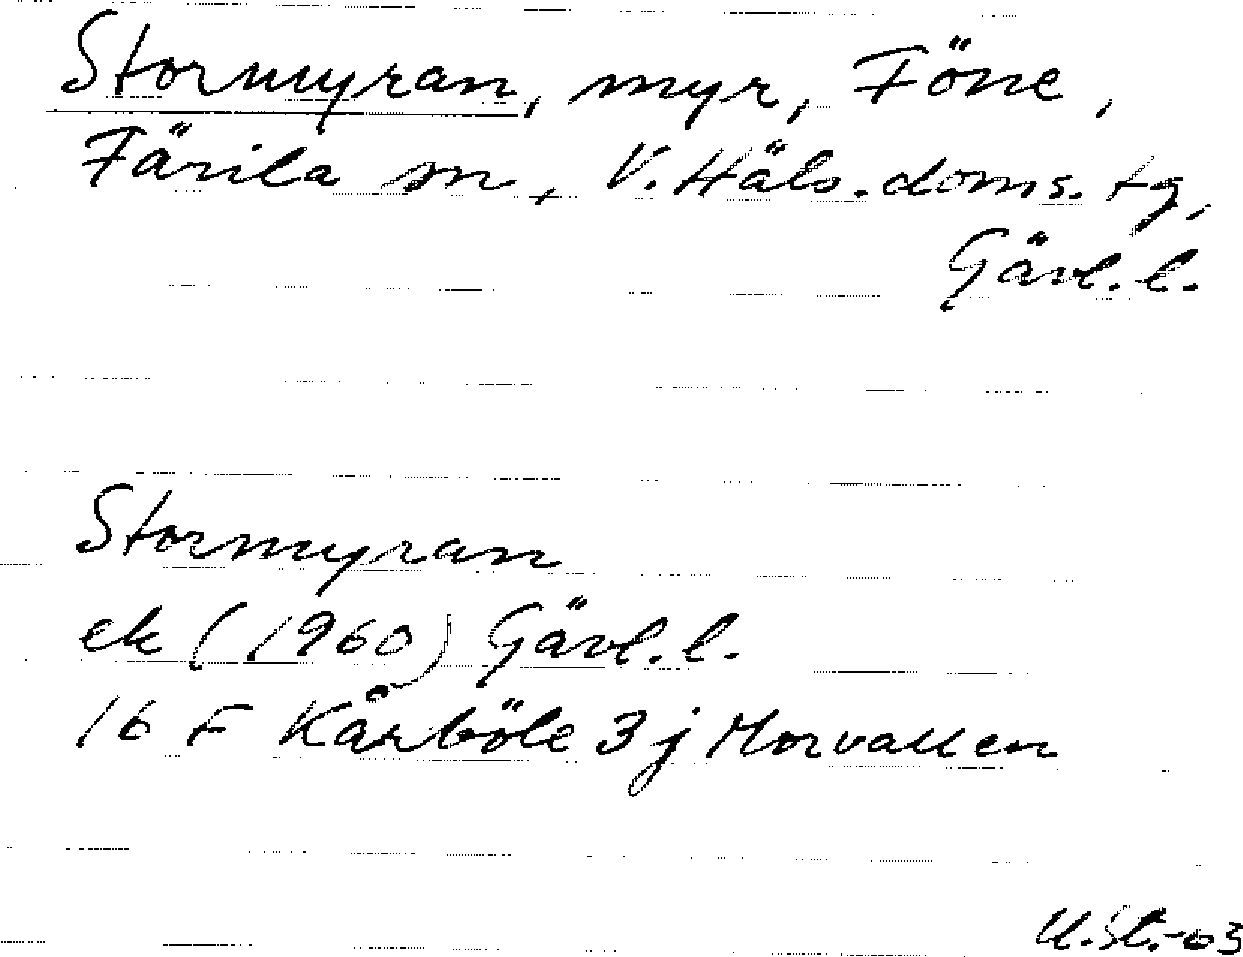 Stormyran, myr, Föne,
Färila sn, V. Häls. doms. tg,
Gävl. l.
Stormyran
ek (1960) Gävl. l.
16 F Kårböle 3 j Morvallen
U. St. -03